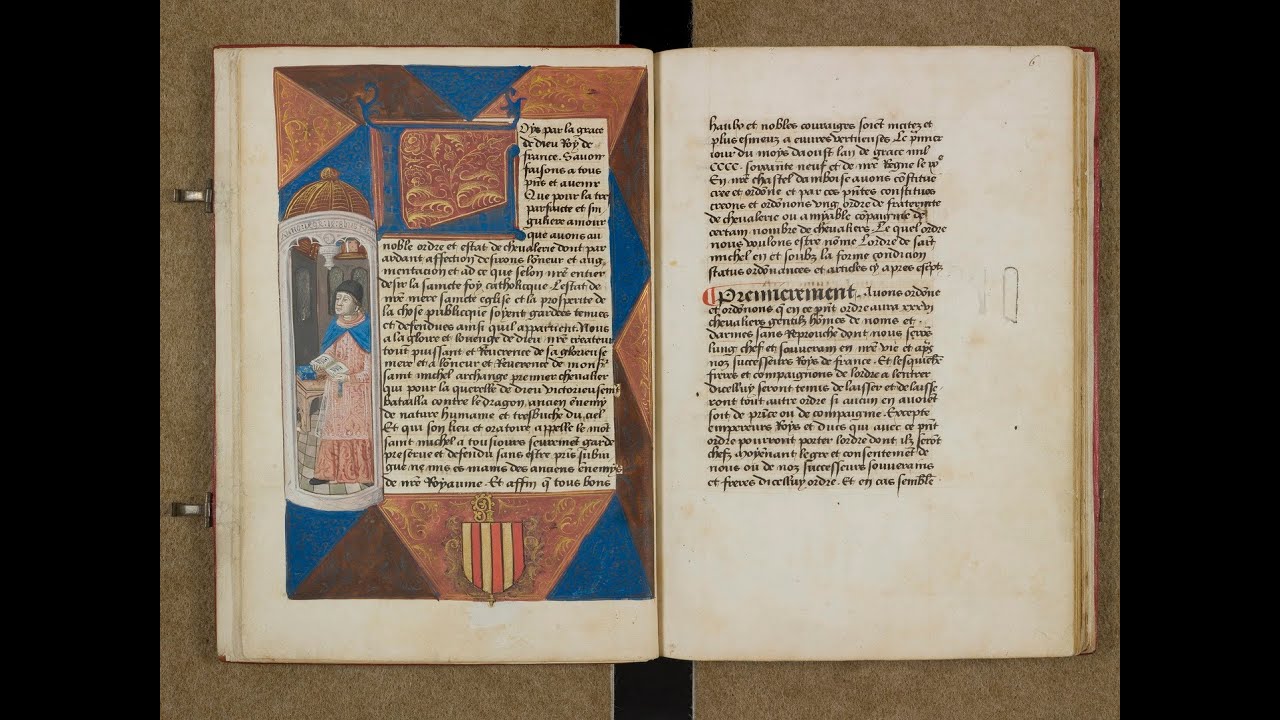 Oys par la grace
de dieu Roy de
france. Savoir
faisons a tous
pñs et avenir
Que pour la tre
parfaicte et sin
guliere amour
que avons au
noble ordre et estat de chevalerie dont par
ardant affection desirons lonneur et aug
mentacion et ad ce que selon nr̃e entier
desir la saincte foy catholicque. Lestat de
nr̃e mere saincte eglise et la prosperite de
la chose publicque soyent gardees tenues
et defendues ainsi quil appartient. Nous
a la gloire et lovenge de Dieu nr̃e createur
tout puissant et Reverence de sa glorieuse
mere et a lonneur et Reverence de monsr̃
saint michel archange premier chevalier
qui pour la querelle de dieu victorieusemt
batailla contre le dragon ancien ennemy
de nature humaine et tresbucha du ciel
Et qui son lieu et oratoire appelle le mont
saint michel a tousiours seurement garde
preserve et defendu sans estre pris subiu
gue ne mis es mains des anciens ennemys
de nr̃e Royaume. Et affin q̃ tous bons
6
haulx et nobles couraiges soiẽt incitez et
plus esmeuz a euvres vertueuses. Le pmier
iour du moys daoust lan de grace mil
CCCC. soixante neuf et de nr̃e Regne le ixe
En nr̃e chastel damboise avons cõstitue
cree et ordõne et par ces pñtes constituons
creons et ordõnons ung ordre de fraternite
de chevalerie ou amyable cõpaignie de
certain nombre de chevaliers. Le quel ordre
nous voulons estre nõme Lordre de saĩct
michel en et soubz la forme condicion
status ordõnances et articles cy apres escriptz
Premierement. Avons ordõne
et ordõnons q̃ en ce pñt ordre aura xxxvi
chevaliers gentilz hõmes de noms et
darmes sans Reprouche dont nous serõs
lung chef et souverain en nr̃e vie et aps̃
noz successeurs Roys de france. Et lesquelz
freres et compaignons de lordre a lentrer
dicelluy seront tenus de laisser et delaisse
ront tout autre ordre si aucun en avoiẽt
soit de prĩce ou de compaignie. Excepte
empereurs Roys et ducs qui avec ce pñt
ordre pourront porter lordre dont ilz serõt
chefz moyẽnant le gre et consentement de
nous ou de noz successeurs souverains
et freres dicelluy ordre. Et en cas semble